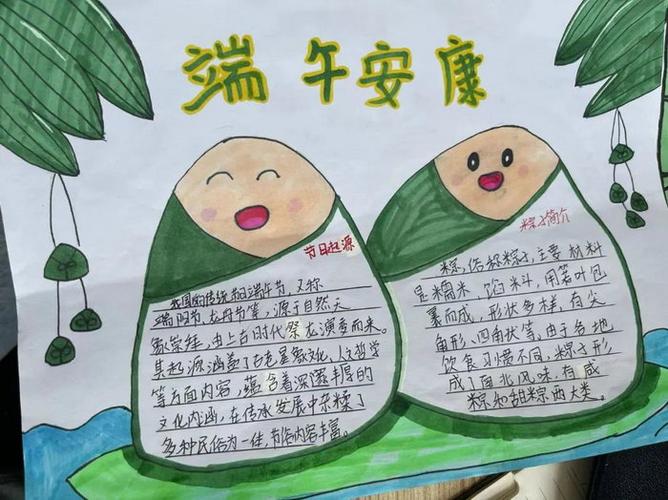 端午安康
节日起源
我国的传统节日端午节，又称
端阳节，龙舟节等，源于自然天
象崇拜，由上古时代祭龙演变而来。
其起源涵盖了古老星象文化，人文哲学
等方面内容，蕴含着深邃丰厚的
文化内涵，在传承发展中杂糅了
多种民俗为一体，节俗内容丰富。
粽子简介
粽，俗称粽子，主要材料
是糯米、馅料，用箬叶包
裹而成，形状多样，有尖
角形、四角状等，由于各地
饮食习惯不同，粽子形
成了南北风味，有咸
粽和甜粽两大类。